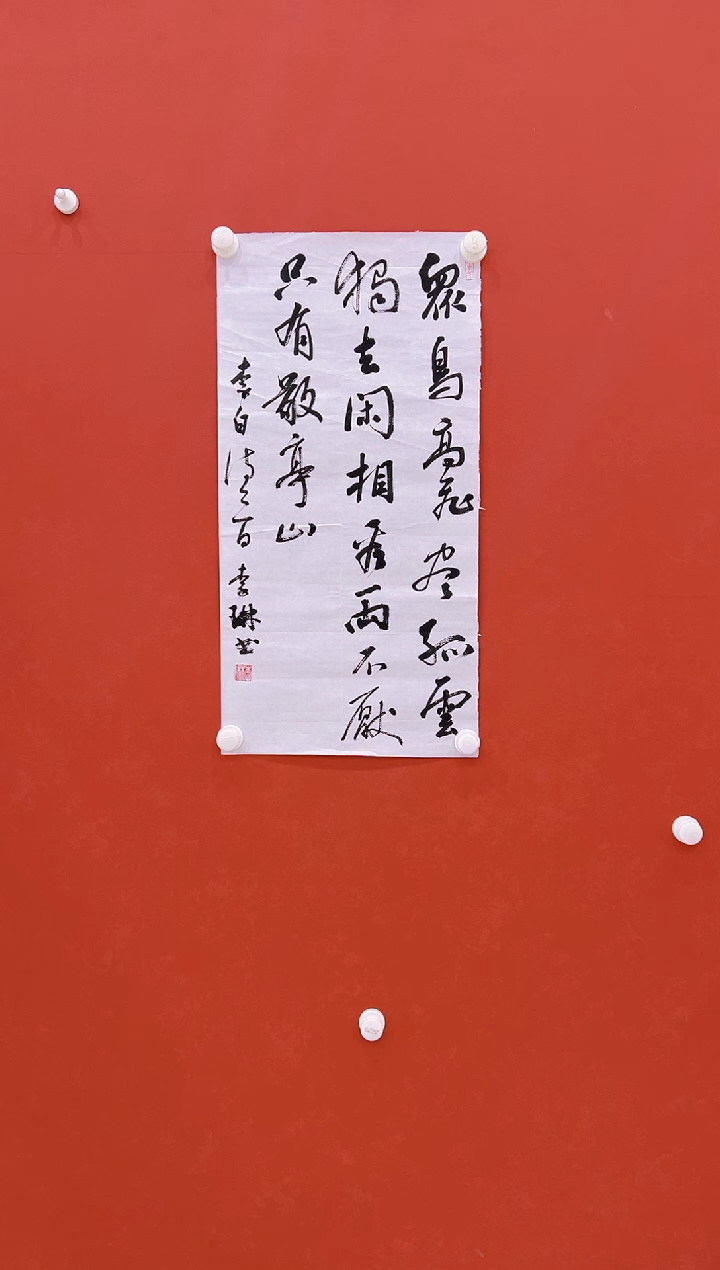 眾鳥高飛盡孤雲
獨去閑相看兩不厭
只有敬亭山
李白詩一首 李琳書